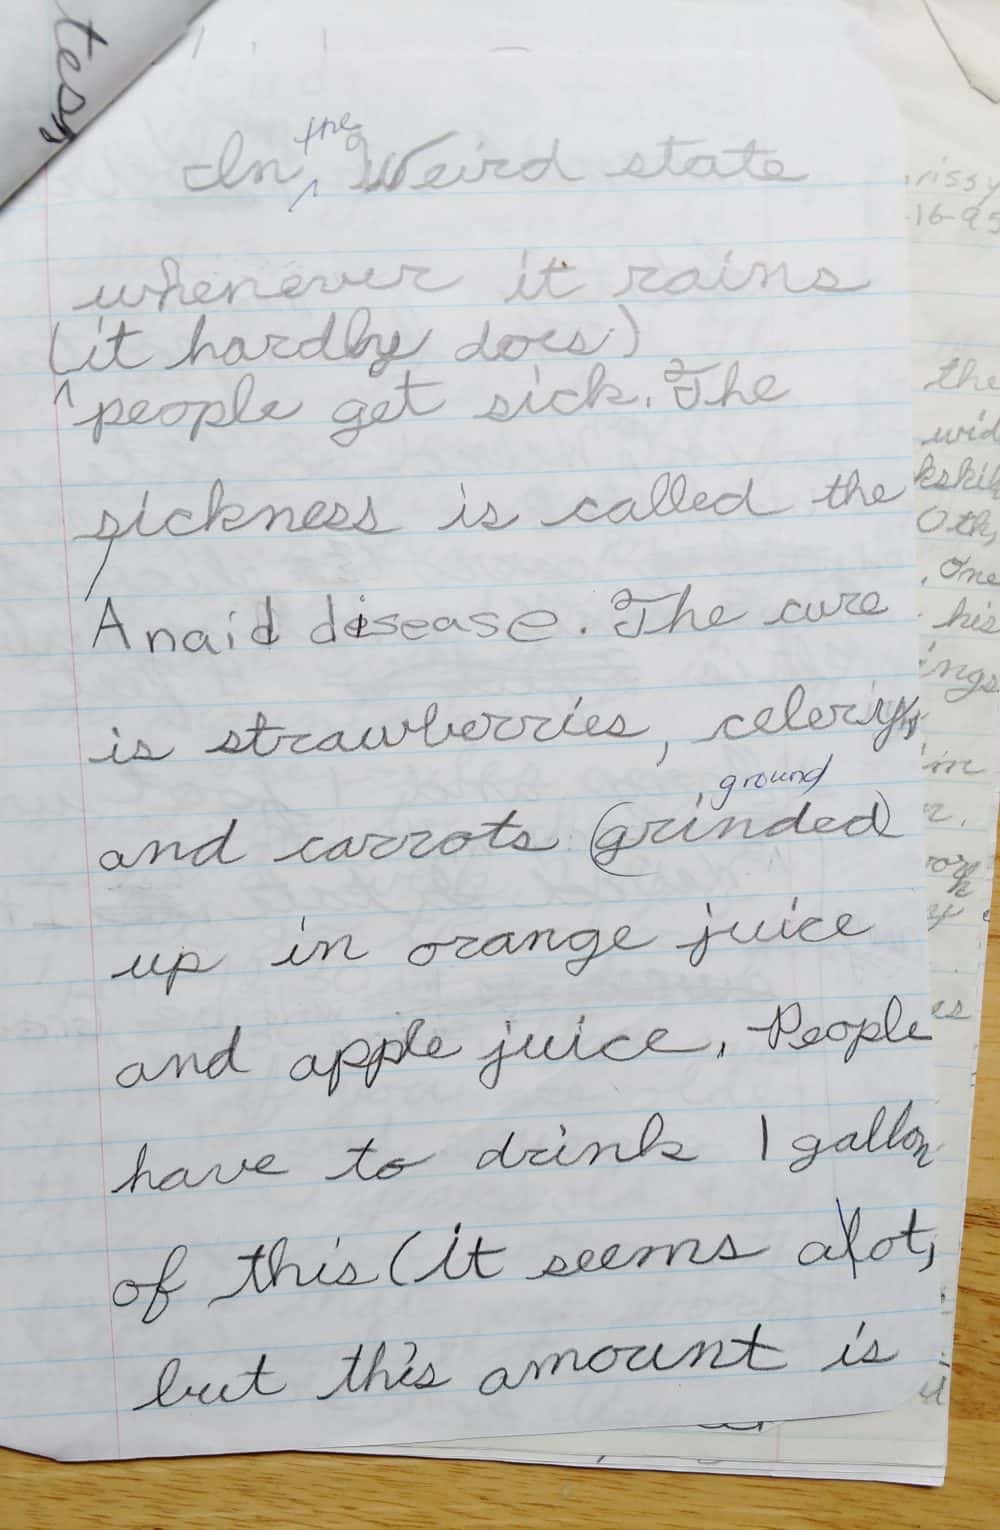 tes
the
In ^ Weird state
whenever it rains
(it hardly does)
^ people get sick. The
sickness is called the
Anaid disease. The cure
is strawberries, celery,
ground
and carrots (grinded)
up in orange juice
and apple juice. People
have to drink 1 gallon
of this (it seems alot,
but this amount is
rissy
16-95
the
wid
One
his
ings